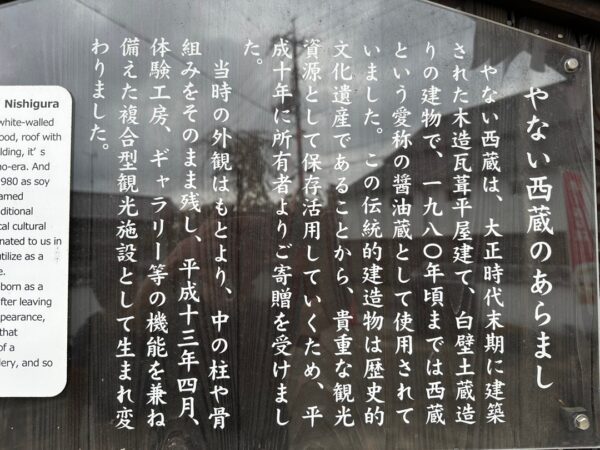 やない西蔵のあらまし
やない西蔵は、大正時代末期に建築
された木造瓦葺平屋建て、白壁土蔵造
りの建物で、一九八〇年頃までは西蔵
という愛称の醤油蔵として使用されて
いました。この伝統的建造物は歴史的
文化遺産であることから、貴重な観光
資源として保存活用していくため、平
成十年に所有者よりご寄贈を受けまし
た。
当時の外観はもとより、中の柱や骨
組みをそのまま残し、平成十三年四月、
体験工房、ギャラリー等の機能を兼ね
備えた複合型観光施設として生まれ変
わりました。
Nishigura
white-walled
ood, roof with
lding, it's
ho-era. And
980 as soy
amed
ditional
cal cultural
nated to us in
utilize as a
e.
born as a
fter leaving
pearance,
that
of a
lery, and so